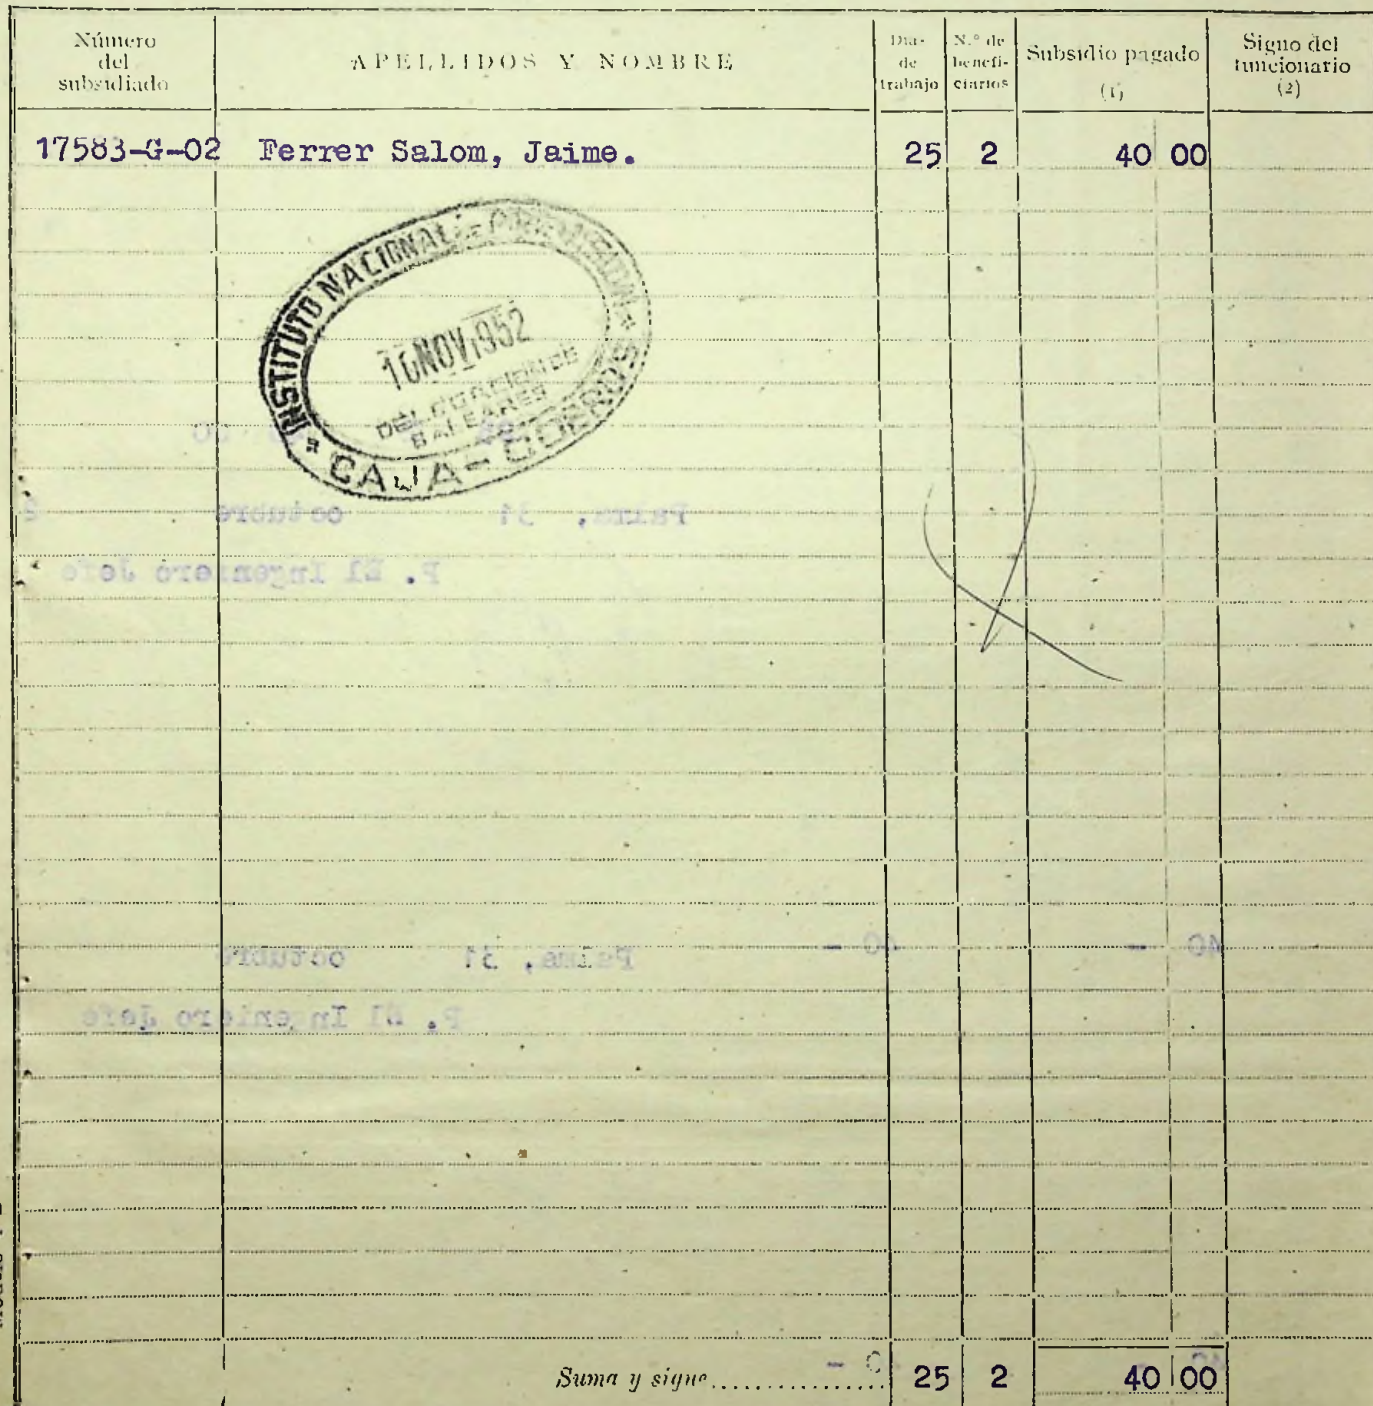 Número del subsidiado
APELLIDOS Y NOMBRE
Días de trabajo
N.º de benefi-ciarios
Subsidio pagado (1)
Signo del funcionario (2)
17583-G-02 Ferrer Salom, Jaime. 25 2 40 00
INSTITUTO NACIONAL DE PREVISION
NOV 1952
DELEGACION DE
BALEARES
CAJA-
Palma, 31 octubre
P. El Ingeniero Jefe
40 - 40 - Palma, 31 octubre
P. El Ingeniero Jefe
Suma y sigue 25 2 40 00